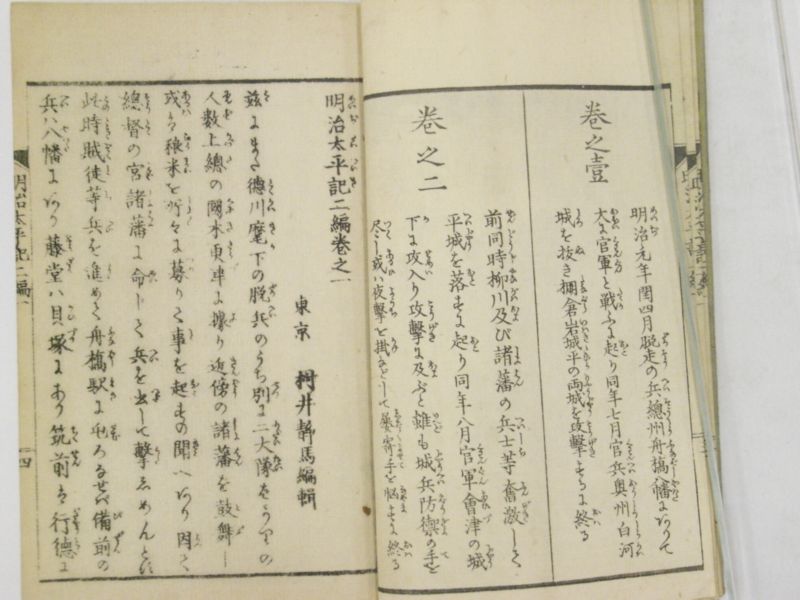 卷之壹
明治元年閏四月脱走の兵總州舟橋八幡にありて
大に官軍と戰ふに起り同年七月官兵奥州白河
城を抜き棚倉岩城平の両城を攻撃するに終る
卷之二
前同時柳川及び諸藩の兵士等奮激して
平城を落すに起り同年八月官軍會津の城
下に攻入り攻撃に及ぶと雖も城兵防禦の手を
尽し或ハ夜撃を掛るとして暴寄手を悩すに終る
明治太平記二編卷之一
東京 村井静馬編輯
茲にまた德川麾下の脱兵のうち別に二大隊をうりの
人數上總の國木更津に據り近傍の諸藩を鼓舞し
或は粮米を所々に募りて事を起すの聞へあり因て
總督の宮諸藩に命じて兵を出して撃しめんとに
此時賊徒等兵を進めて舟橋駅に出るを備前の
兵ハ八幡にあり藤堂ハ貝塚にあり筑前は行德に
明治太平記二編一
四